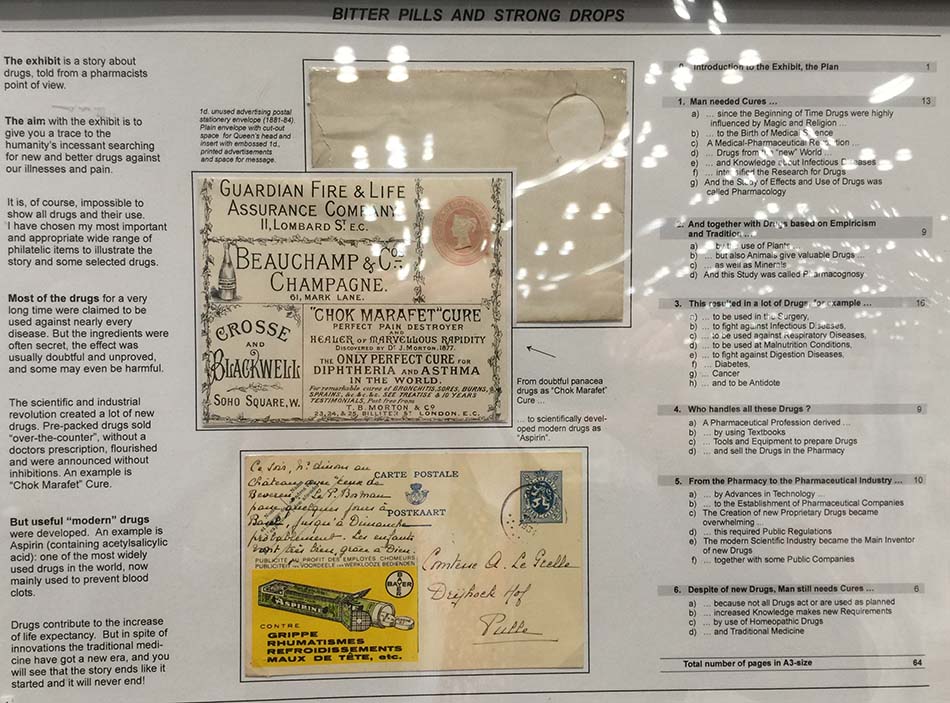 BITTER PILLS AND STRONG DROPS
The exhibit is a story about
drugs, told from a pharmacists
point of view.
The aim with the exhibit is to
give you a trace to the
humanity's incessant searching
for new and better drugs against
our illnesses and pain.
It is, of course, impossible to
show all drugs and their use.
I have chosen my most important
and appropriate wide range of
philatelic items to illustrate the
story and some selected drugs.
Most of the drugs for a very
long time were claimed to be
used against nearly every
disease. But the ingredients were
often secret, the effect was
usually doubtful and unproved,
and some may even be harmful.
The scientific and industrial
revolution created a lot of new
drugs. Pre-packed drugs sold
"over-the-counter", without a
doctors prescription, flourished
and were announced without
inhibitions. An example is
"Chok Marafet" Cure.
But useful "modern" drugs
were developed. An example is
Aspirin (containing acetylsalicylic
acid): one of the most widely
used drugs in the world, now
mainly used to prevent blood
clots.
Drugs contribute to the increase
of life expectancy. But in spite of
innovations the traditional medi-
cine have got a new era, and you
will see that the story ends like it
started and it will never end!
1d. unused advertising postal
stationery envelope (1881-84).
Plain envelope with cut-out
space for Queen's head and
insert with embossed 1d.,
printed advertisements
and space for message.
GUARDIAN FIRE & LIFE
ASSURANCE COMPANY
11, LOMBARD ST. E.C.
BEAUCHAMP & COS
CHAMPAGNE.
61, MARK LANE.
CROSSE
AND
BLACKWELL
SOHO SQUARE, W.
"CHOK MARAFET" CURE
PERFECT PAIN DESTROYER
AND
HEALER OF MARVELLOUS RAPIDITY
DISCOVERED BY DR J. MORTON, 1877.
THE ONLY PERFECT CURE FOR
DIPHTHERIA AND ASTHMA
IN THE WORLD.
For remarkable cures of BRONCHITIS, SORES, BURNS,
SPRAINS, &c. &c. &c. SEE TREATISE & 10 YEARS
TESTIMONIALS, Post free from
T. B. MORTON & CO
23, 24, & 25, BILLITER ST LONDON. E.C.
From doubtful panacea
drugs as "Chok Marafet"
Cure ...
... to scientifically devel-
oped modern drugs as
"Aspirin".
Ce soir, N. dinons au
Château avec ceux de
Beveren. Le P. Boman
pour quelques jours à
jusqu'à Dimanche
probablement. Les enfants
vont très bien, grâce à Dieu.
CARTE POSTALE
POSTKAART
PUBLICITE AU PROFIT DES EMPLOYÉS CHOMEURS
PUBLICITEIT TEN VOORDEELE VAN WERKLOOZE BEDIENDEN
BAYER
ASPIRINE
CONTRE
GRIPPE
RHUMATISMES
REFROIDISSEMENTS
MAUX DE TÊTE, etc.
Comtesse A. Le Grelle
Hof
Pulle
0. Introduction to the Exhibit, the Plan 1
1. Man needed Cures ... 13
a) ... since the Beginning of Time Drugs were highly
influenced by Magic and Religion ...
b) ... to the Birth of Medical Science
c) A Medical-Pharmaceutical Revolution ...
d) ... Drugs from the "new" World ...
e) ... and Knowledge about Infectious Diseases
f) ... intensified the Research for Drugs
g) And the Study of Effects and Use of Drugs was
called Pharmacology
2. And together with Drugs based on Empiricism
and Tradition ... 9
a) ... by the use of Plants ...
b) ... but also Animals give valuable Drugs ...
c) ... as well as Minerals
d) And this Study was called Pharmacognosy
3. This resulted in a lot of Drugs, for example ... 16
... to be used in the Surgery,
b) ... to fight against Infectious Diseases,
c) ... to be used against Respiratory Diseases,
d) ... to be used at Malnutrition Conditions,
e) ... to fight against Digestion Diseases,
f) ... Diabetes,
g) ... Cancer
h) ... and to be Antidote
4. Who handles all these Drugs ? 9
a) A Pharmaceutical Profession derived ...
b) ... by using Textbooks
c) ... Tools and Equipment to prepare Drugs
d) ... and sell the Drugs in the Pharmacy
5. From the Pharmacy to the Pharmaceutical Industry ... 10
a) ... by Advances in Technology ...
b) ... to the Establishment of Pharmaceutical Companies
c) The Creation of new Proprietary Drugs became
overwhelming ...
d) ... this required Public Regulations
e) The modern Scientific Industry became the Main Inventor
of new Drugs
f) ... together with some Public Companies
6. Despite of new Drugs, Man still needs Cures ... 6
a) ... because not all Drugs act or are used as planned
b) ... increased Knowledge makes new Requirements
c) ... by use of Homeopathic Drugs
d) ... and Traditional Medicine
Total number of pages in A3-size 64